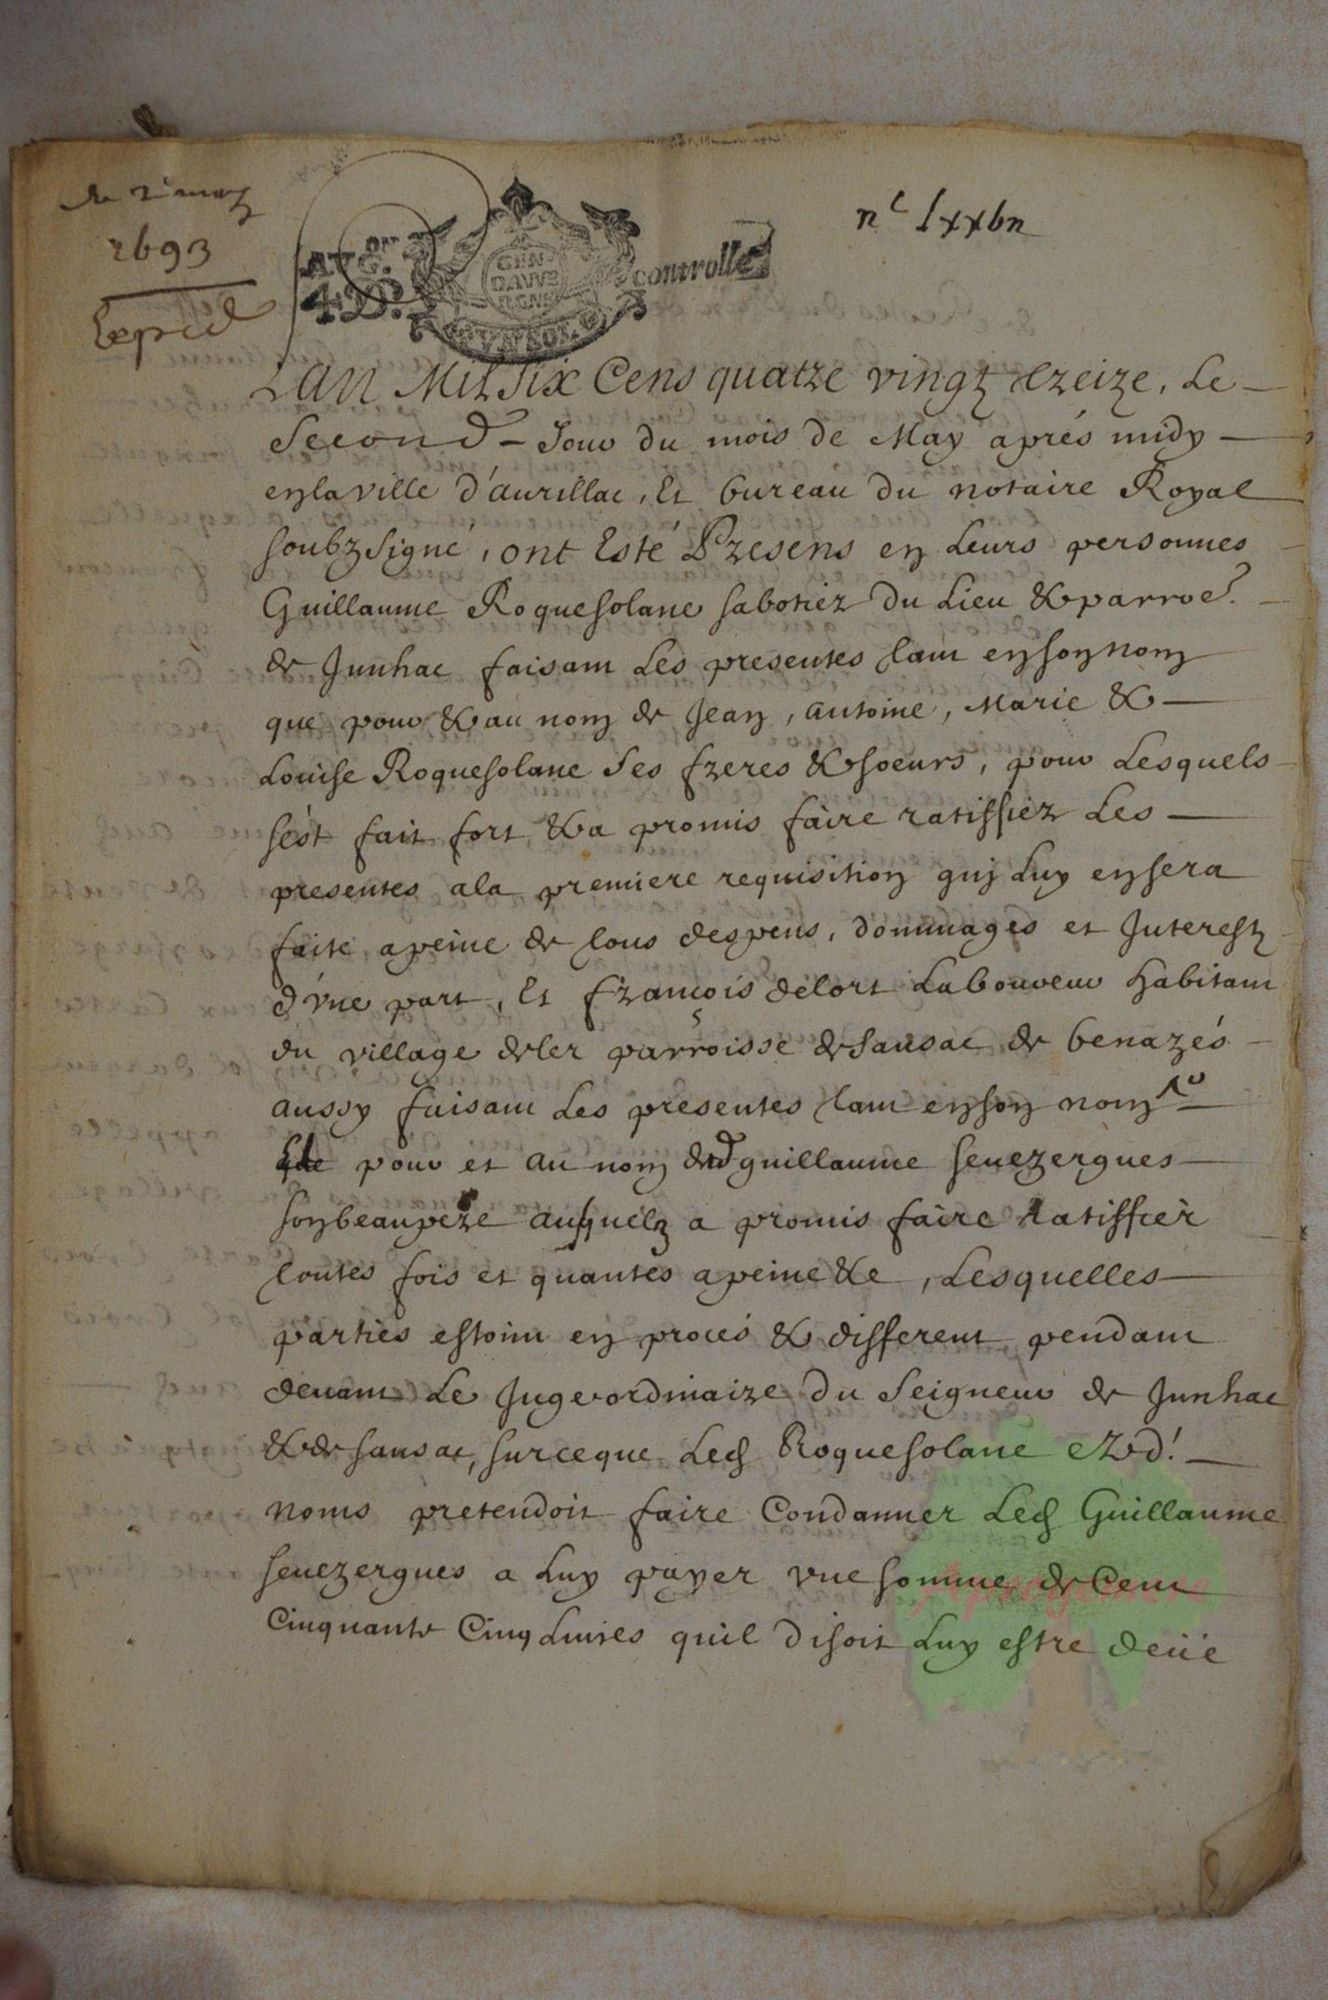 du 2 may
1693
Expedié
AVG.on
4 D.rs
GEN
DAVVR
RGNE
UN SOL
controllé
nc lxxbn
Lan Mil Six Cens quatre vingt treize, Le
Second Jour du mois de May aprés midy
en la ville d'aurillac, Et bureau du notaire Royal
soubzsigné, ont Esté Presens en Leurs personnes
Guillaume Roquesolane sabotier du Lieu & parroe.
de Junhac faisant Les presentes tant en son nom
que pour & au nom de Jean, antoine, Marie &
Louise Roquesolane Ses freres & soeurs, pour Lesquels
s'est fait fort & a promis faire ratiffier Les
presentes a la premiere requisition quj Luy en sera
faite a peine de tous despens, dommages et Interestz
d'vne part, Et François delort Laboureur habitant
du village deler parroisse de Sansac de benazés
aussy faisant Les presentes tant en son nom
que pour et au nom dud guillaume seuezergues
son beaupere ausquelz a promis faire Ratiffier
toutes fois et quantes a peine &c, Lesquelles
parties estoint en procés & different pendant
deuant Le Juge ordinaire du Seigneur de Junhac
& de sansac, sur ce que Led Roquesolane ezd!
noms pretendoit faire Condanner Led Guillaume
seuezergues a Luy payer vne somme de Cent
Cinquante Cinq Liures qu'il disoit Luy estre deüe
Aprogemere